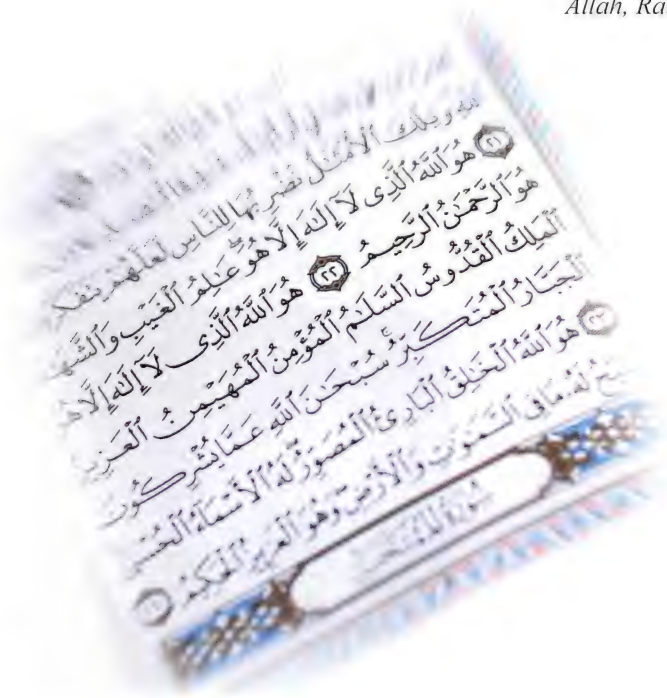 Allah, Ra
وتلك الأمثال نضربها للناس لعلهم يتفكرو
﴿٢١﴾ هُوَ ٱللَّهُ ٱلَّذِى لَآ إِلَٰهَ إِلَّا هُوَ عَٰلِمُ ٱلْغَيْبِ وَٱلشَّهَ
هُوَ ٱلرَّحْمَٰنُ ٱلرَّحِيمُ ﴿٢٢﴾ هُوَ ٱللَّهُ ٱلَّذِى لَآ إِلَٰهَ إِلَّا هُوَ
ٱلْمَلِكُ ٱلْقُدُّوسُ ٱلسَّلَٰمُ ٱلْمُؤْمِنُ ٱلْمُهَيْمِنُ ٱلْعَزِيز
ٱلْجَبَّارُ ٱلْمُتَكَبِّرُ سُبْحَٰنَ ٱللَّهِ عَمَّا يُشْرِكُونَ
﴿٢٣﴾ هُوَ ٱللَّهُ ٱلْخَٰلِقُ ٱلْبَارِئُ ٱلْمُصَوِّرُ لَهُ ٱلْأَسْمَآءُ ٱلْحُسْن
بِّحُ لَهُۥ مَا فِى ٱلسَّمَٰوَٰتِ وَٱلْأَرْضِ وَهُوَ ٱلْعَزِيزُ ٱلْحَكِيمُ
سُورَةُ ٱلْمُمْتَحنَةِ